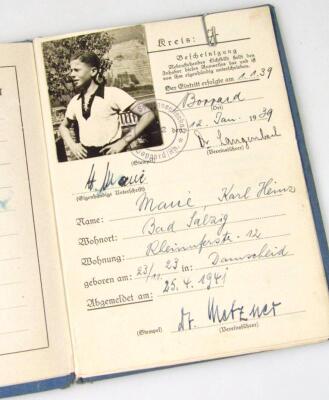 Kreis:
Bescheinigung
Nebenstehendes Lichtbild stellt den
Inhaber dieses Ausweises dar und ist
von ihm eigenhändig unterschrieben.
Der Eintritt erfolgte am 1.1.39
Boppard
(Ort)
den 12. Jan. 1939
Dr. Langenbach
(Stempel) (Vereinsführer)
H. Maué
(Eigenhändige Unterschrift)
Name: Maué, Karl Heinz
Wohnort: Bad Salzig
Wohnung: Rheinuferstr. 12
geboren am: 23/11. 23 in: Damscheid
Abgemeldet am: 25. 4. 1941
Dr. Metzner
(Stempel) (Vereinsführer)